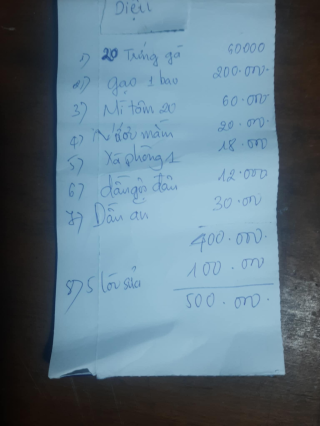 Diệu
1) 20 Trứng gà 60000
2) gạo 1 bao 200.000.
3) Mì tôm 20 60.000.
4) Nước mắm 20.000.
5) Xà phòng 1 18.000.
6) dầu gội đầu 12.000
7) Dầu ăn 30.000.
400.000.
8) 5 lốc sữa 100.000
500.000.